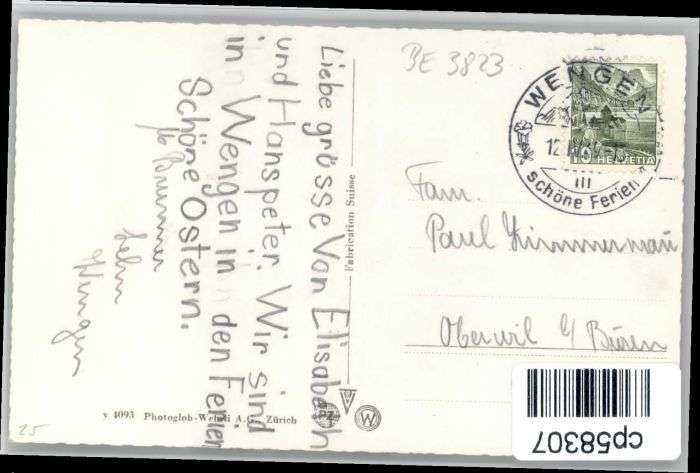 BE 3823
WENGEN
12.
10 HELVETIA
III
schöne Ferien
Liebe grüsse Von Elisabeth
und Hanspeter. Wir sind
in Wengen in den Ferien
Schöne Ostern.
Brunner
Wengen
Fam.
Paul Zimmermann
Oberwil b/ Büren
Fabrication Suisse
v 4093 Photoglob-Wehrli A.G., Zürich
W
25
cp58307